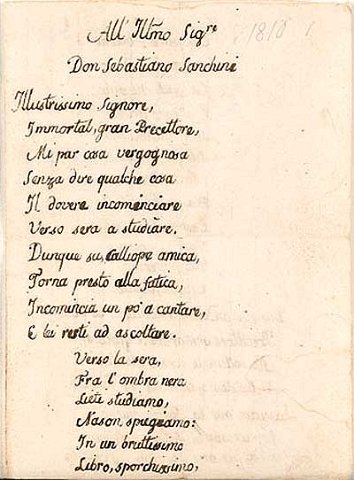 1810 1
All' Illmo Sigre
Don Sebastiano Sanchini
Illustrissimo Signore,
Immortal, gran Precettore,
Mi par cosa vergognosa
Senza dire qualche cosa
Il dovere incominciare
Verso sera a studiare.
Dunque su, Calliope amica,
Torna presto alla fatica,
Incomincia un pò a cantare,
E lei resti ad ascoltare.
Verso la sera,
Fra l'ombra nera
Lieti studiamo,
Nason spieghiamo:
In un bruttissimo
Libro, sporchissimo,